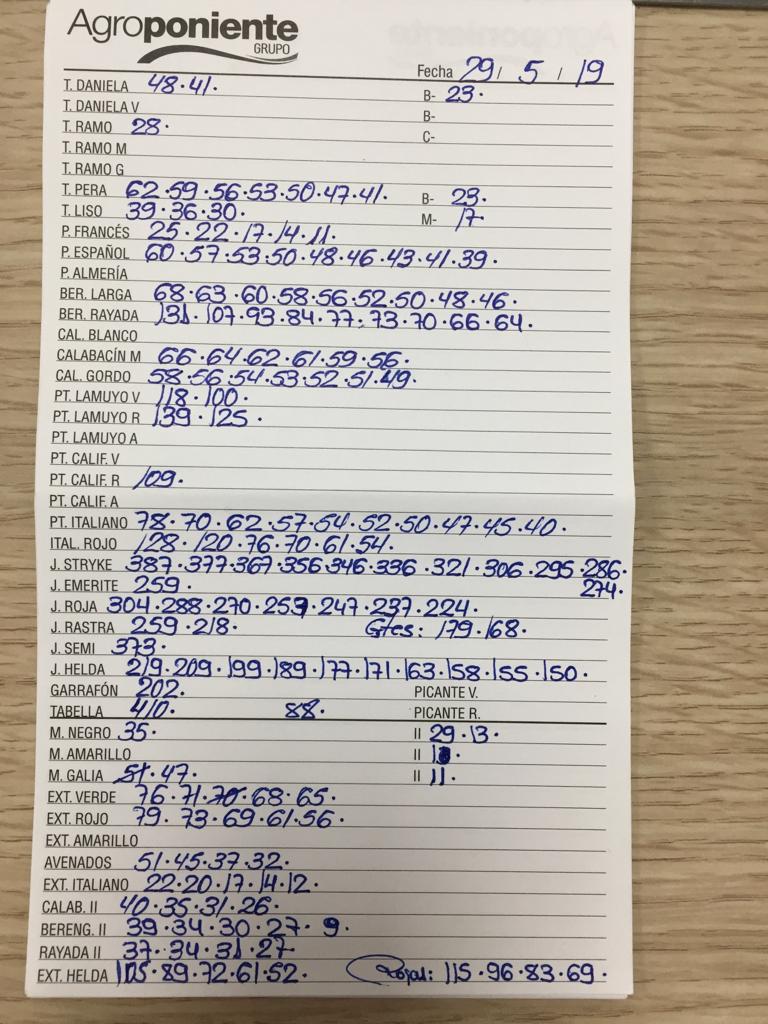 Agroponiente
GRUPO
Fecha 29 / 5 / 19
T. DANIELA 48·41· B- 23·
T. DANELA V B-
T. RAMO 28· C-
T. RAMO M
T. RAMO G
T. PERA 62·59·56·53·50·47·41· B- 23·
T. LISO 39·36·30· M- 17
P. FRANCÉS 25·22·17·14·11·
P. ESPAÑOL 60·57·53·50·48·46·43·41·39·
P. ALMERÍA
BER. LARGA 68·63·60·58·56·52·50·48·46·
BER. RAYADA 131·107·93·84·77·73·70·66·64·
CAL. BLANCO
CALABACÍN M 66·64·62·61·59·56·
CAL. GORDO 58·56·54·53·52·51·49·
PT. LAMUYO V 118·100·
PT. LAMUYO R 139·125·
PT. LAMUYO A
PT. CALIF. V
PT. CALIF. R 109·
PT. CALIF. A
PT. ITALIANO 78·70·62·57·54·52·50·47·45·40·
ITAL. ROJO 128·120·76·70·61·54·
J. STRYKE 387·377·367·356·346·336·321·306·295·286·
J. EMERITE 259· 274·
J. ROJA 304·288·270·259·247·237·224·
J. RASTRA 259·218· Gtes: 179·168·
J. SEMI 373·
J. HELDA 219·209·199·189·177·171·163·158·155·150·
GARRAFÓN 202· PICANTE V.
TABELLA 410· 88· PICANTE R.
M. NEGRO 35· II 29·13·
M. AMARILLO II
M. GALIA 51·47· II 11·
EXT. VERDE 76·71·70·68·65·
EXT. ROJO 79·73·69·61·56·
EXT. AMARILLO
AVENADOS 51·45·37·32·
EXT. ITALIANO 22·20·17·14·12·
CALAB. II 40·35·31·26·
BERENG. II 39·34·30·27·9·
RAYADA II 37·34·31·27·
EXT. HELDA 105·89·72·61·52· Rojas: 115·96·83·69·